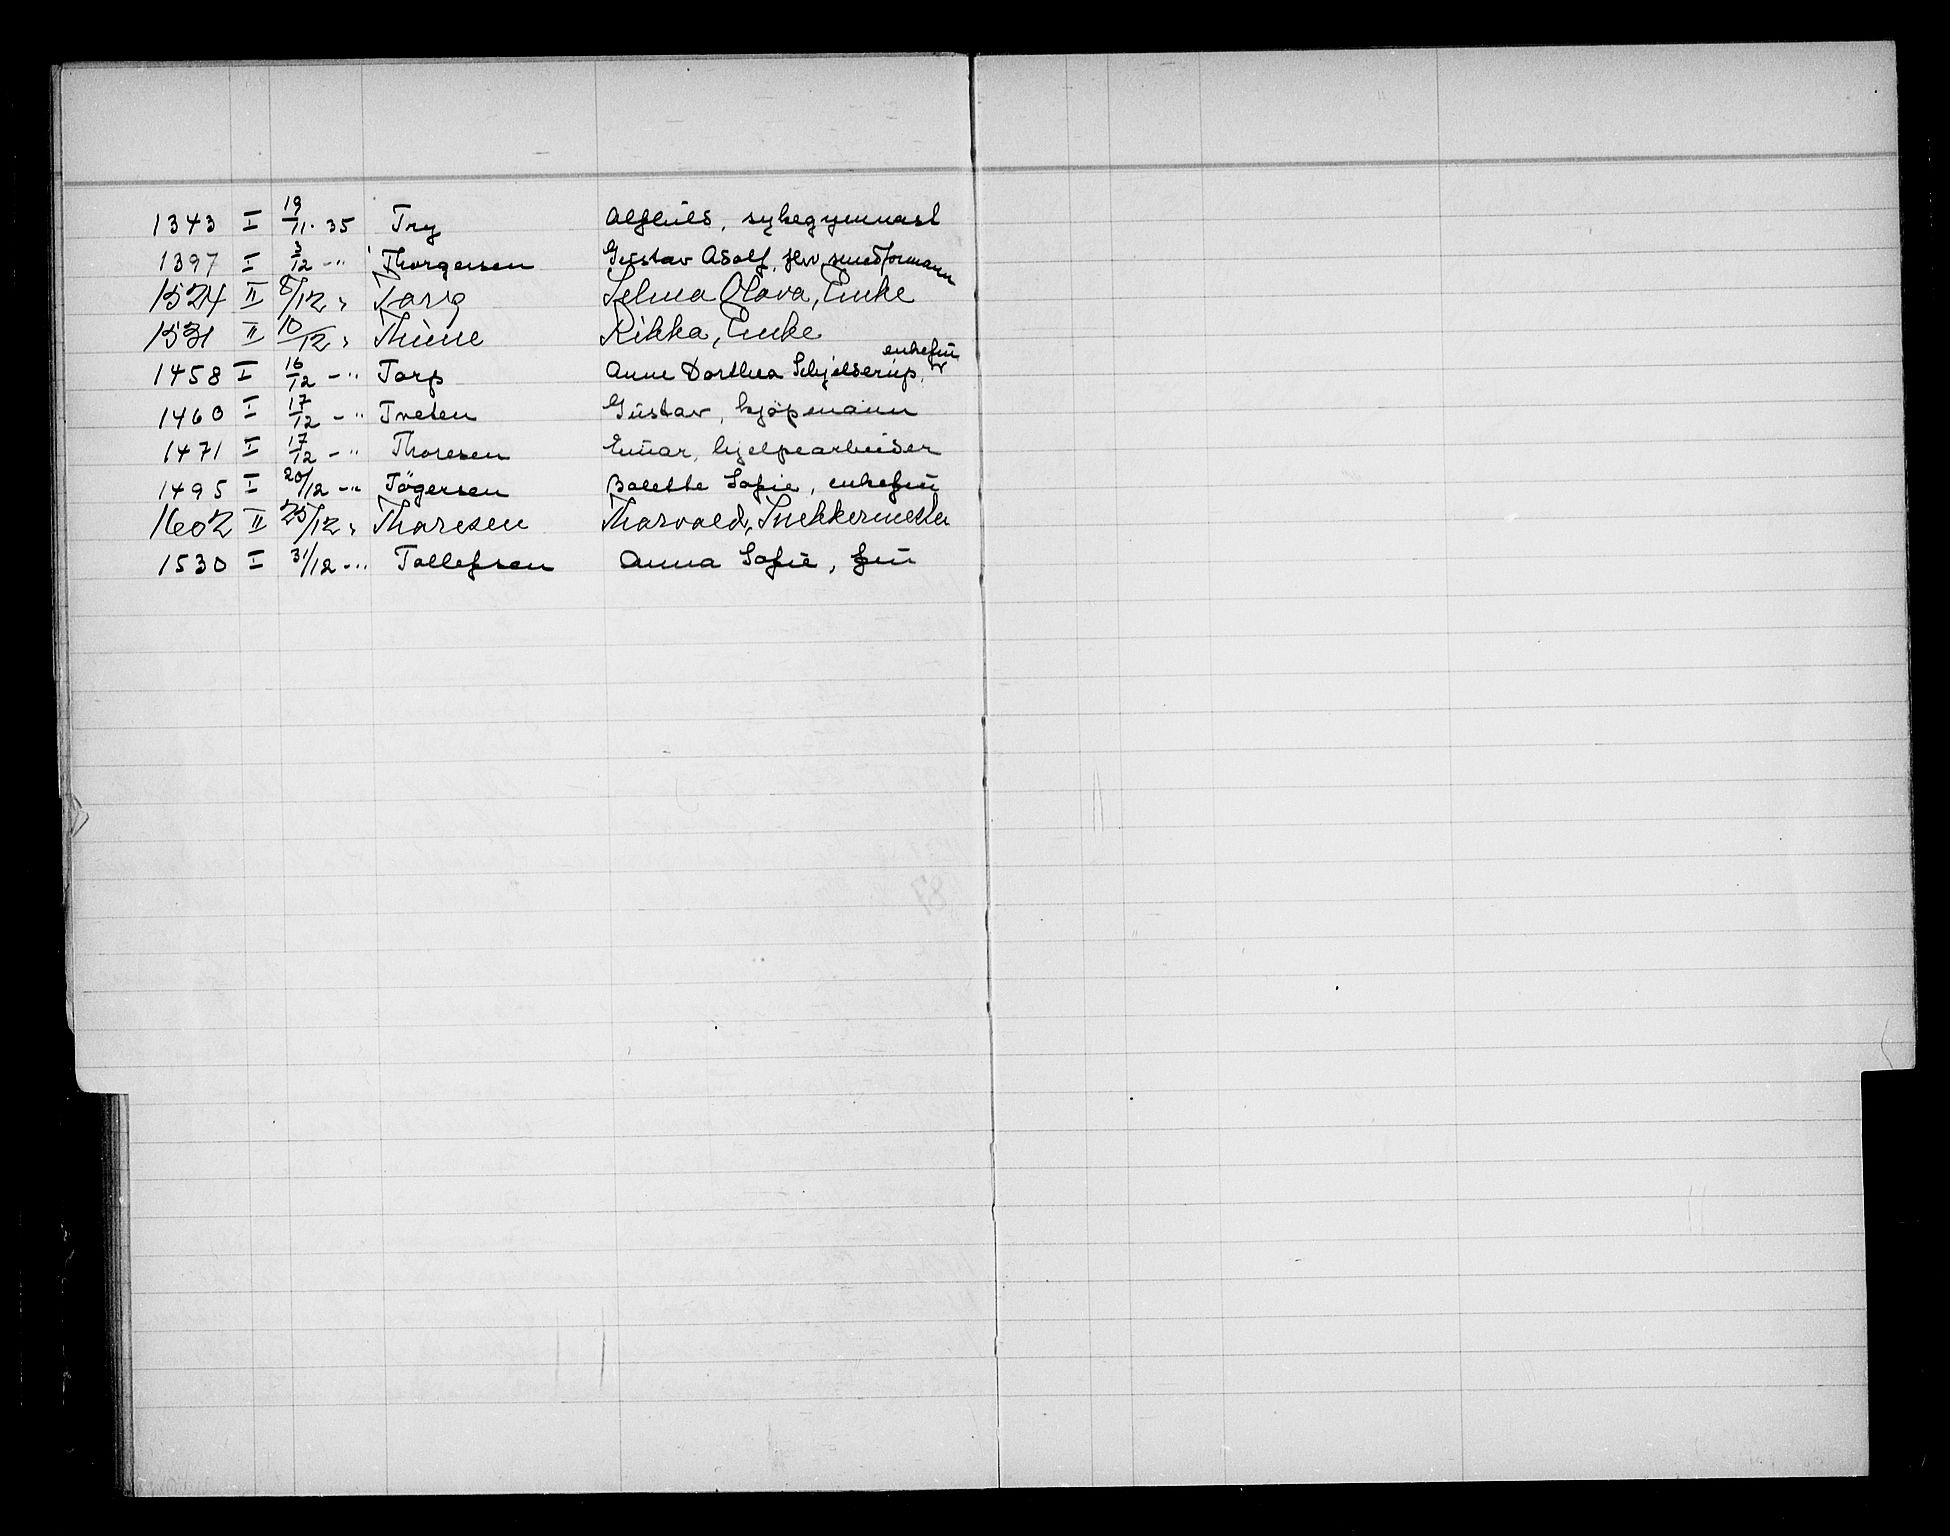 1343 I 19/11.35 Try Alfhild, sykegymnast
1397 I 3/12 -" Thorgersen Gustav Adolf, smedformann
1524 II 8/12 " Torig Selma Olava, Enke
1531 II 10/12 " Thune Rikka, Enke
1458 I 16/12 -" Torp Anne Dorthea Schjelderup, enkefru
1460 I 17/12 -" Tveten Gustav, kjøpmann
1471 I 17/12 -" Thoresen Einar, hjelpearbeider
1495 I 20/12 -" Tögersen Bolette Sofie, enkefru
1602 II 25/12 " Thoresen Thorvald, Snekkermester
1530 I 31/12 -" Tollefsen Anna Sofie, fru